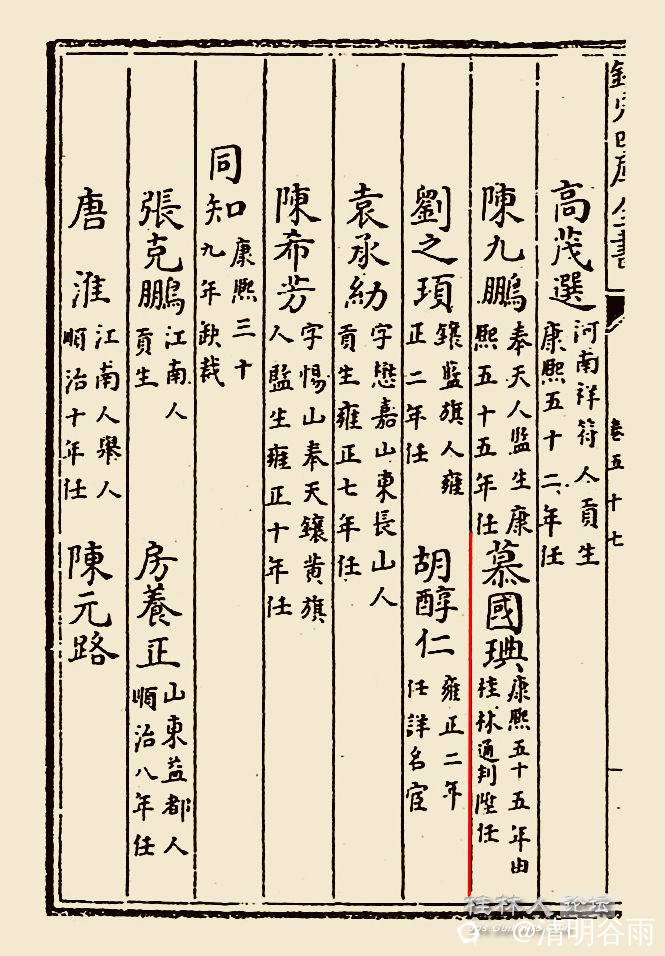 欽定四庫全書
卷五十七
一
高茂選 河南祥符人貢生康熙五十二年任
陳九鵬 奉天人監生康熙五十五年任 慕國琠 康熙五十五年由桂林通判陞任
劉之頊 鑲藍旗人雍正二年任 胡醇仁 雍正二年任詳名宦
袁承幼 字懋嘉山東長山人貢生雍正七年任
陳希芳 字惕山奉天鑲黃旗人監生雍正十年任
同知 康熙三十九年缺裁
張克鵬 江南人貢生 房養正 山東益都人順治八年任
唐淮 江南人舉人順治十年任 陳元路
桂林人论坛
@清明谷雨